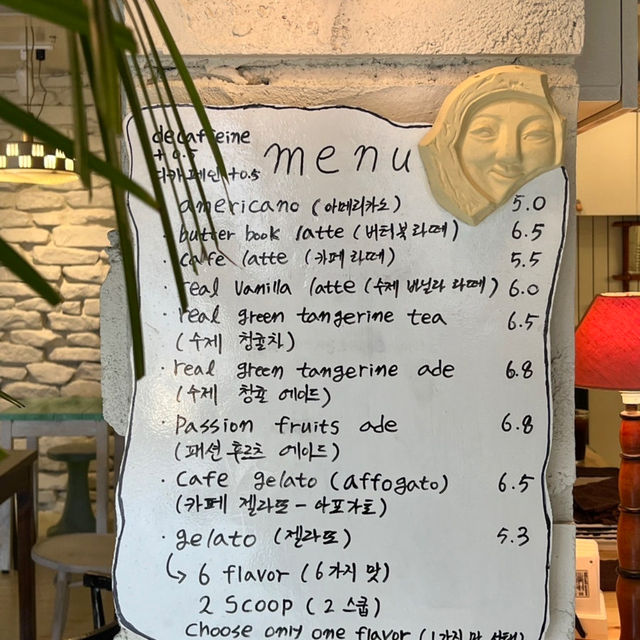 decaffeine
+ 0.5
디카페인 +0.5
menu
americano (아메리카노) 5.0
· butter book latte (버터북라떼) 6.5
· cafe latte (카페라떼) 5.5
· real Vanilla latte (수제 바닐라 라떼) 6.0
· real green tangerine tea 6.5
(수제 청귤차)
· real green tangerine ade 6.8
(수제 청귤 에이드)
· Passion fruits ade 6.8
(패션후르츠 에이드)
· Cafe gelato (affogato) 6.5
(카페 젤라또 - 아포가토)
· gelato (젤라또) 5.3
↳ 6 flavor (6가지 맛)
2 Scoop (2 스쿱)
Choose only one flavor (1가지 맛 선택)